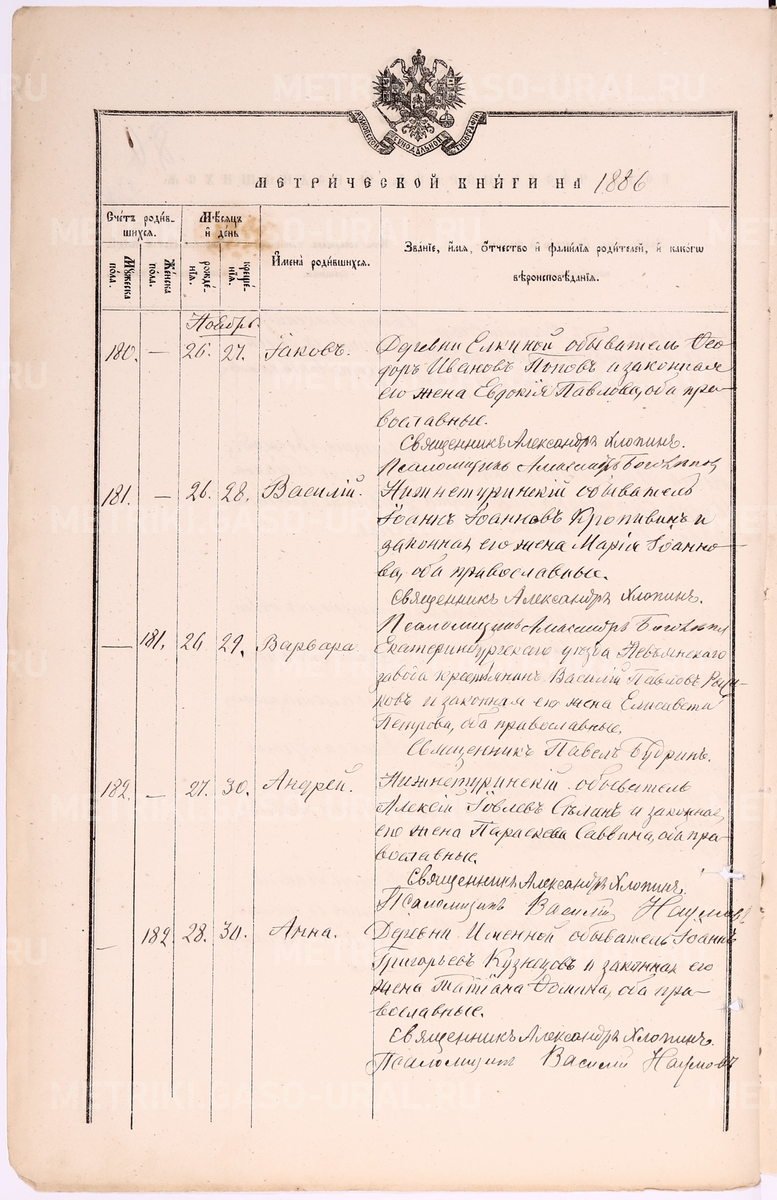 METRIKI.GASO-URAL.RU
МОСКОВСКОЙ СѴНОДАЛЬНОЙ ТИПОГРАФІИ
МЕТРИЧЕСКОЙ КНИГИ НА 1886
Счетъ родив-
шихся.
Мѣсяцъ
и день
Имена родившихся.
Званіе, имя, отчество и фамилія родителей, и какогѡ
вѣроисповѣданія.
Мужеска пола.
Женска пола.
рожде-
нія.
креще-
нія.
Ноябрь
180. — 26. 27. Іаковъ. Деревни Елкиной обыватель Ѳео-
доръ Ивановъ Поповъ и законная
его жена Евдокія Павлова, оба пра-
вославные.
Священникъ Александръ Хлопинъ.
Псаломщикъ Александръ
181. — 26. 28. Василій. Нижнетуринскій обыватель
Іоаннъ Іоанновъ Кропивинъ и
законная его жена Марія Іоанно-
ва, оба православные.
Священникъ Александръ Хлопинъ.
Псаломщикъ Александръ
— 181. 26 29. Варвара. Екатеринбургскаго уѣзда Невьянскаго
завода крестьянинъ Василій Павловъ
ковъ и законная его жена Елисавета
Петрова, оба православные.
Священникъ Павелъ Бѣдринъ.
182. — 27. 30. Андрей. Нижнетуринскій обыватель
Алексій Іовлевъ и законная
его жена Параскева Саввина, оба пра-
вославные.
Священникъ Александръ Хлопинъ.
Псаломщикъ Василій Наумовъ
— 182. 28. 30. Анна. Деревни Именной обыватель Іоаннъ
Григорьевъ Кузнецовъ и законная его
жена Татіана Ѳомина, оба пра-
вославные.
Священникъ Александръ Хлопинъ.
Псаломщикъ Василій Наумовъ
METRIKI.GASO-URAL.RU